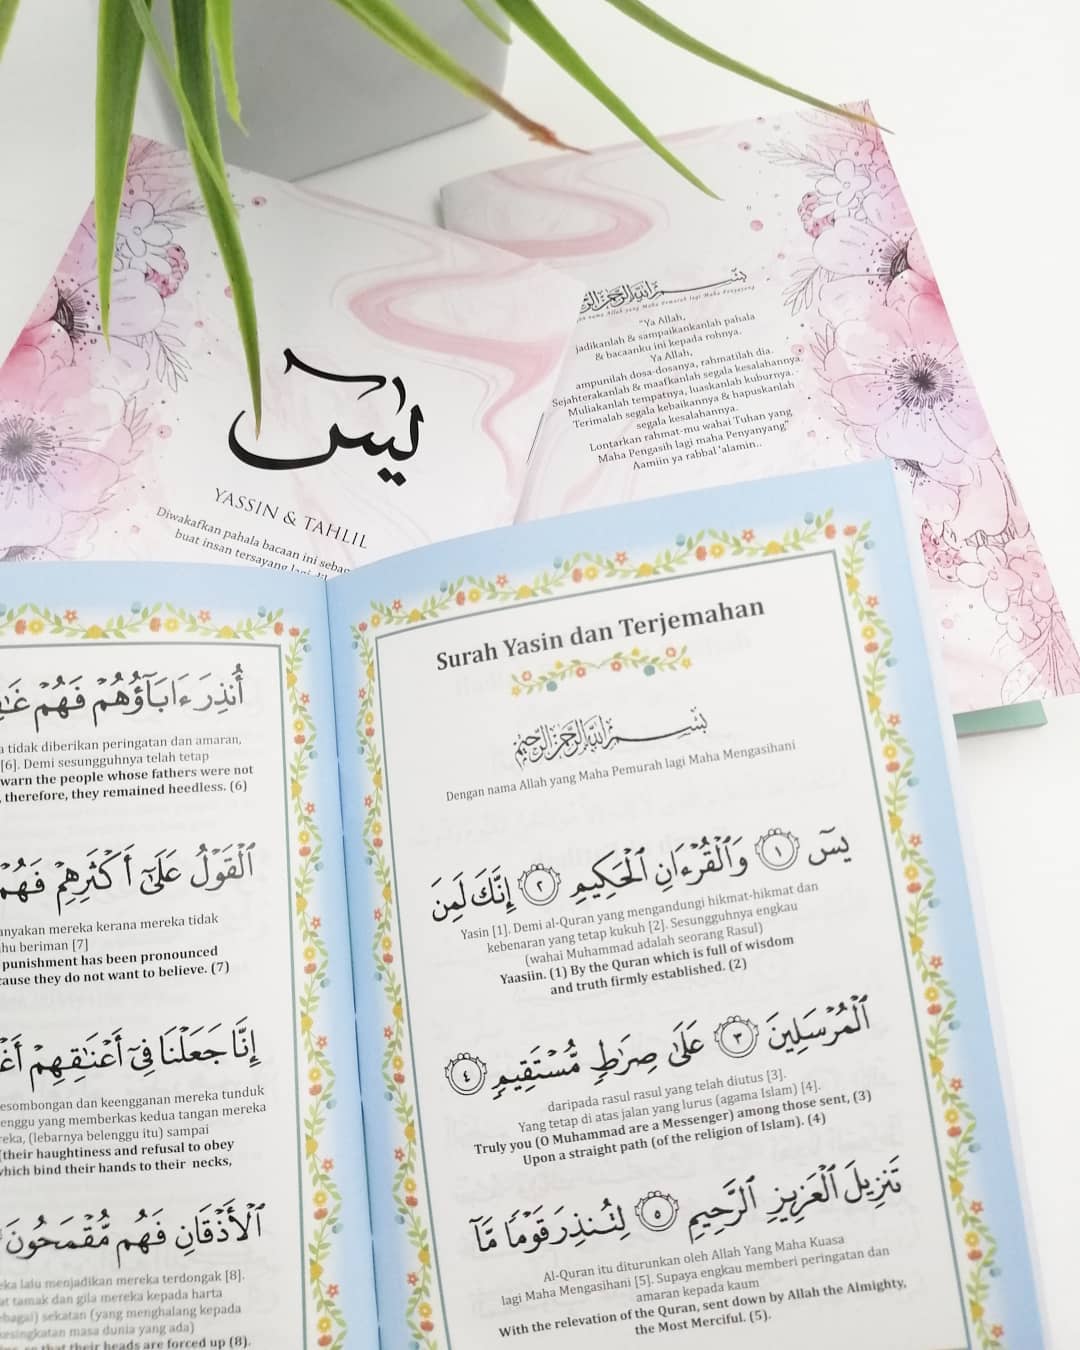 يس
YASSIN & TAHLIL
Diwakafkan pahala bacaan ini
buat insan tersayang
بسم الله الرحمن الرحيم
nama Allah yang Maha Pemurah lagi Maha Penyayang
"Ya Allah,
jadikanlah & sampaikankanlah pahala
& bacaanku ini kepada rohnya.
Ya Allah,
ampunilah dosa-dosanya, rahmatilah dia.
Sejahterakanlah & maafkanlah segala kesalahannya.
Muliakanlah tempatnya, luaskanlah kuburnya.
Terimalah segala kebaikannya & hapuskanlah
segala kesalahannya.
Lontarkan rahmat-mu wahai Tuhan yang
Maha Pengasih lagi maha Penyanyang"
Aamiin ya rabbal 'alamin..
Surah Yasin dan Terjemahan
بسم الله الرحمن الرحيم
Dengan nama Allah yang Maha Pemurah lagi Maha Mengasihani
يسٓ ١ وَٱلْقُرْءَانِ ٱلْحَكِيمِ ٢ إِنَّكَ لَمِنَ
Yasin [1]. Demi al-Quran yang mengandungi hikmat-hikmat dan
kebenaran yang tetap kukuh [2]. Sesungguhnya engkau
(wahai Muhammad adalah seorang Rasul)
Yaasiin. (1) By the Quran which is full of wisdom
and truth firmly established. (2)
ٱلْمُرْسَلِينَ ٣ عَلَىٰ صِرَٰطٍ مُّسْتَقِيمٍ ٤
daripada rasul rasul yang telah diutus [3].
Yang tetap di atas jalan yang lurus (agama Islam) [4].
Truly you (O Muhammad are a Messenger) among those sent, (3)
Upon a straight path (of the religion of Islam). (4)
تَنزِيلَ ٱلْعَزِيزِ ٱلرَّحِيمِ ٥ لِتُنذِرَ قَوْمًا مَّآ
Al-Quran itu diturunkan oleh Allah Yang Maha Kuasa
lagi Maha Mengasihani [5]. Supaya engkau memberi peringatan dan
amaran kepada kaum
With the relevation of the Quran, sent down by Allah the Almighty,
the Most Merciful. (5).
أُنذِرَ ءَابَآؤُهُمْ فَهُمْ
tidak diberikan peringatan dan amaran,
[6]. Demi sesungguhnya telah tetap
warn the people whose fathers were not
, therefore, they remained heedless. (6)
ٱلْقَوْلُ عَلَىٰٓ أَكْثَرِهِمْ فَهُمْ
mereka kerana mereka tidak
beriman [7]
punishment has been pronounced
they do not want to believe. (7)
إِنَّا جَعَلْنَا فِىٓ أَعْنَٰقِهِمْ
dan keengganan mereka tunduk
yang memberkas kedua tangan mereka
(lebarnya belenggu itu) sampai
(their haughtiness and refusal to obey
which bind their hands to their necks,
ٱلْأَذْقَانِ فَهُم مُّقْمَحُونَ
lalu menjadikan mereka terdongak [8].
tamak dan gila mereka kepada harta
sekatan (yang menghalang kepada
masa dunia yang ada)
that their heads are forced up (8).